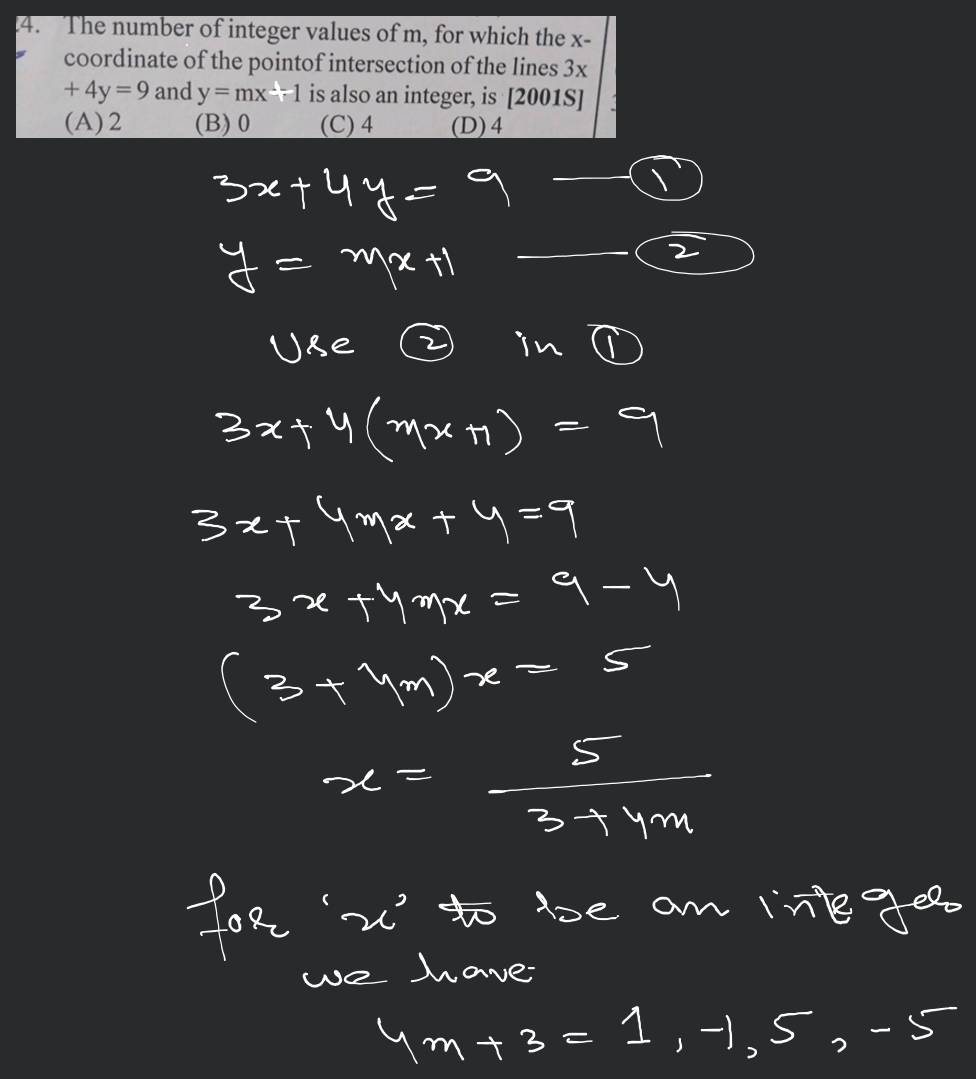 4. The number of integer values of m, for which the x-
coordinate of the pointof intersection of the lines 3x
+ 4y = 9 and y = mx + 1 is also an integer, is [2001S]
(A) 2 (B) 0 (C) 4 (D) 4
3x + 4y = 9 — ①
y = mx + 1 — ②
Use ② in ①
3x + 4(mx + 1) = 9
3x + 4mx + 4 = 9
3x + 4mx = 9 - 4
(3 + 4m)x = 5
x = 5 / 3 + 4m
for 'x' to be an integer
we have
4m + 3 = 1, -1, 5, -5